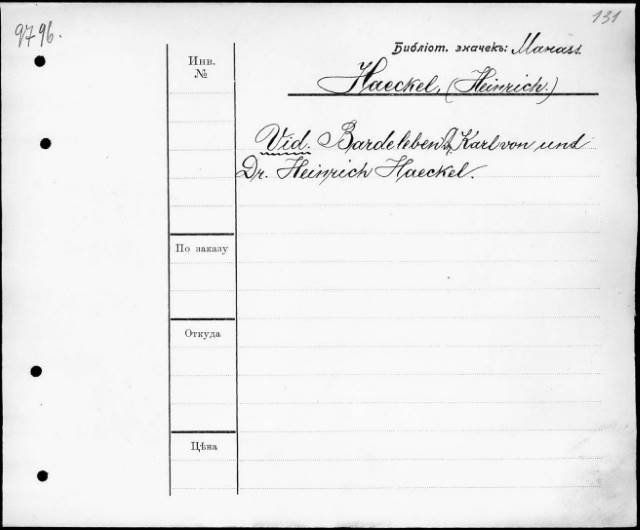 9796.
131
Библіот. значекъ: Манасс.
Haeckel, (Heinrich.)
Инв.
№
Vid. Bardeleben, Karl von und
Dr. Heinrich Haeckel.
По заказу
Откуда
Цѣна